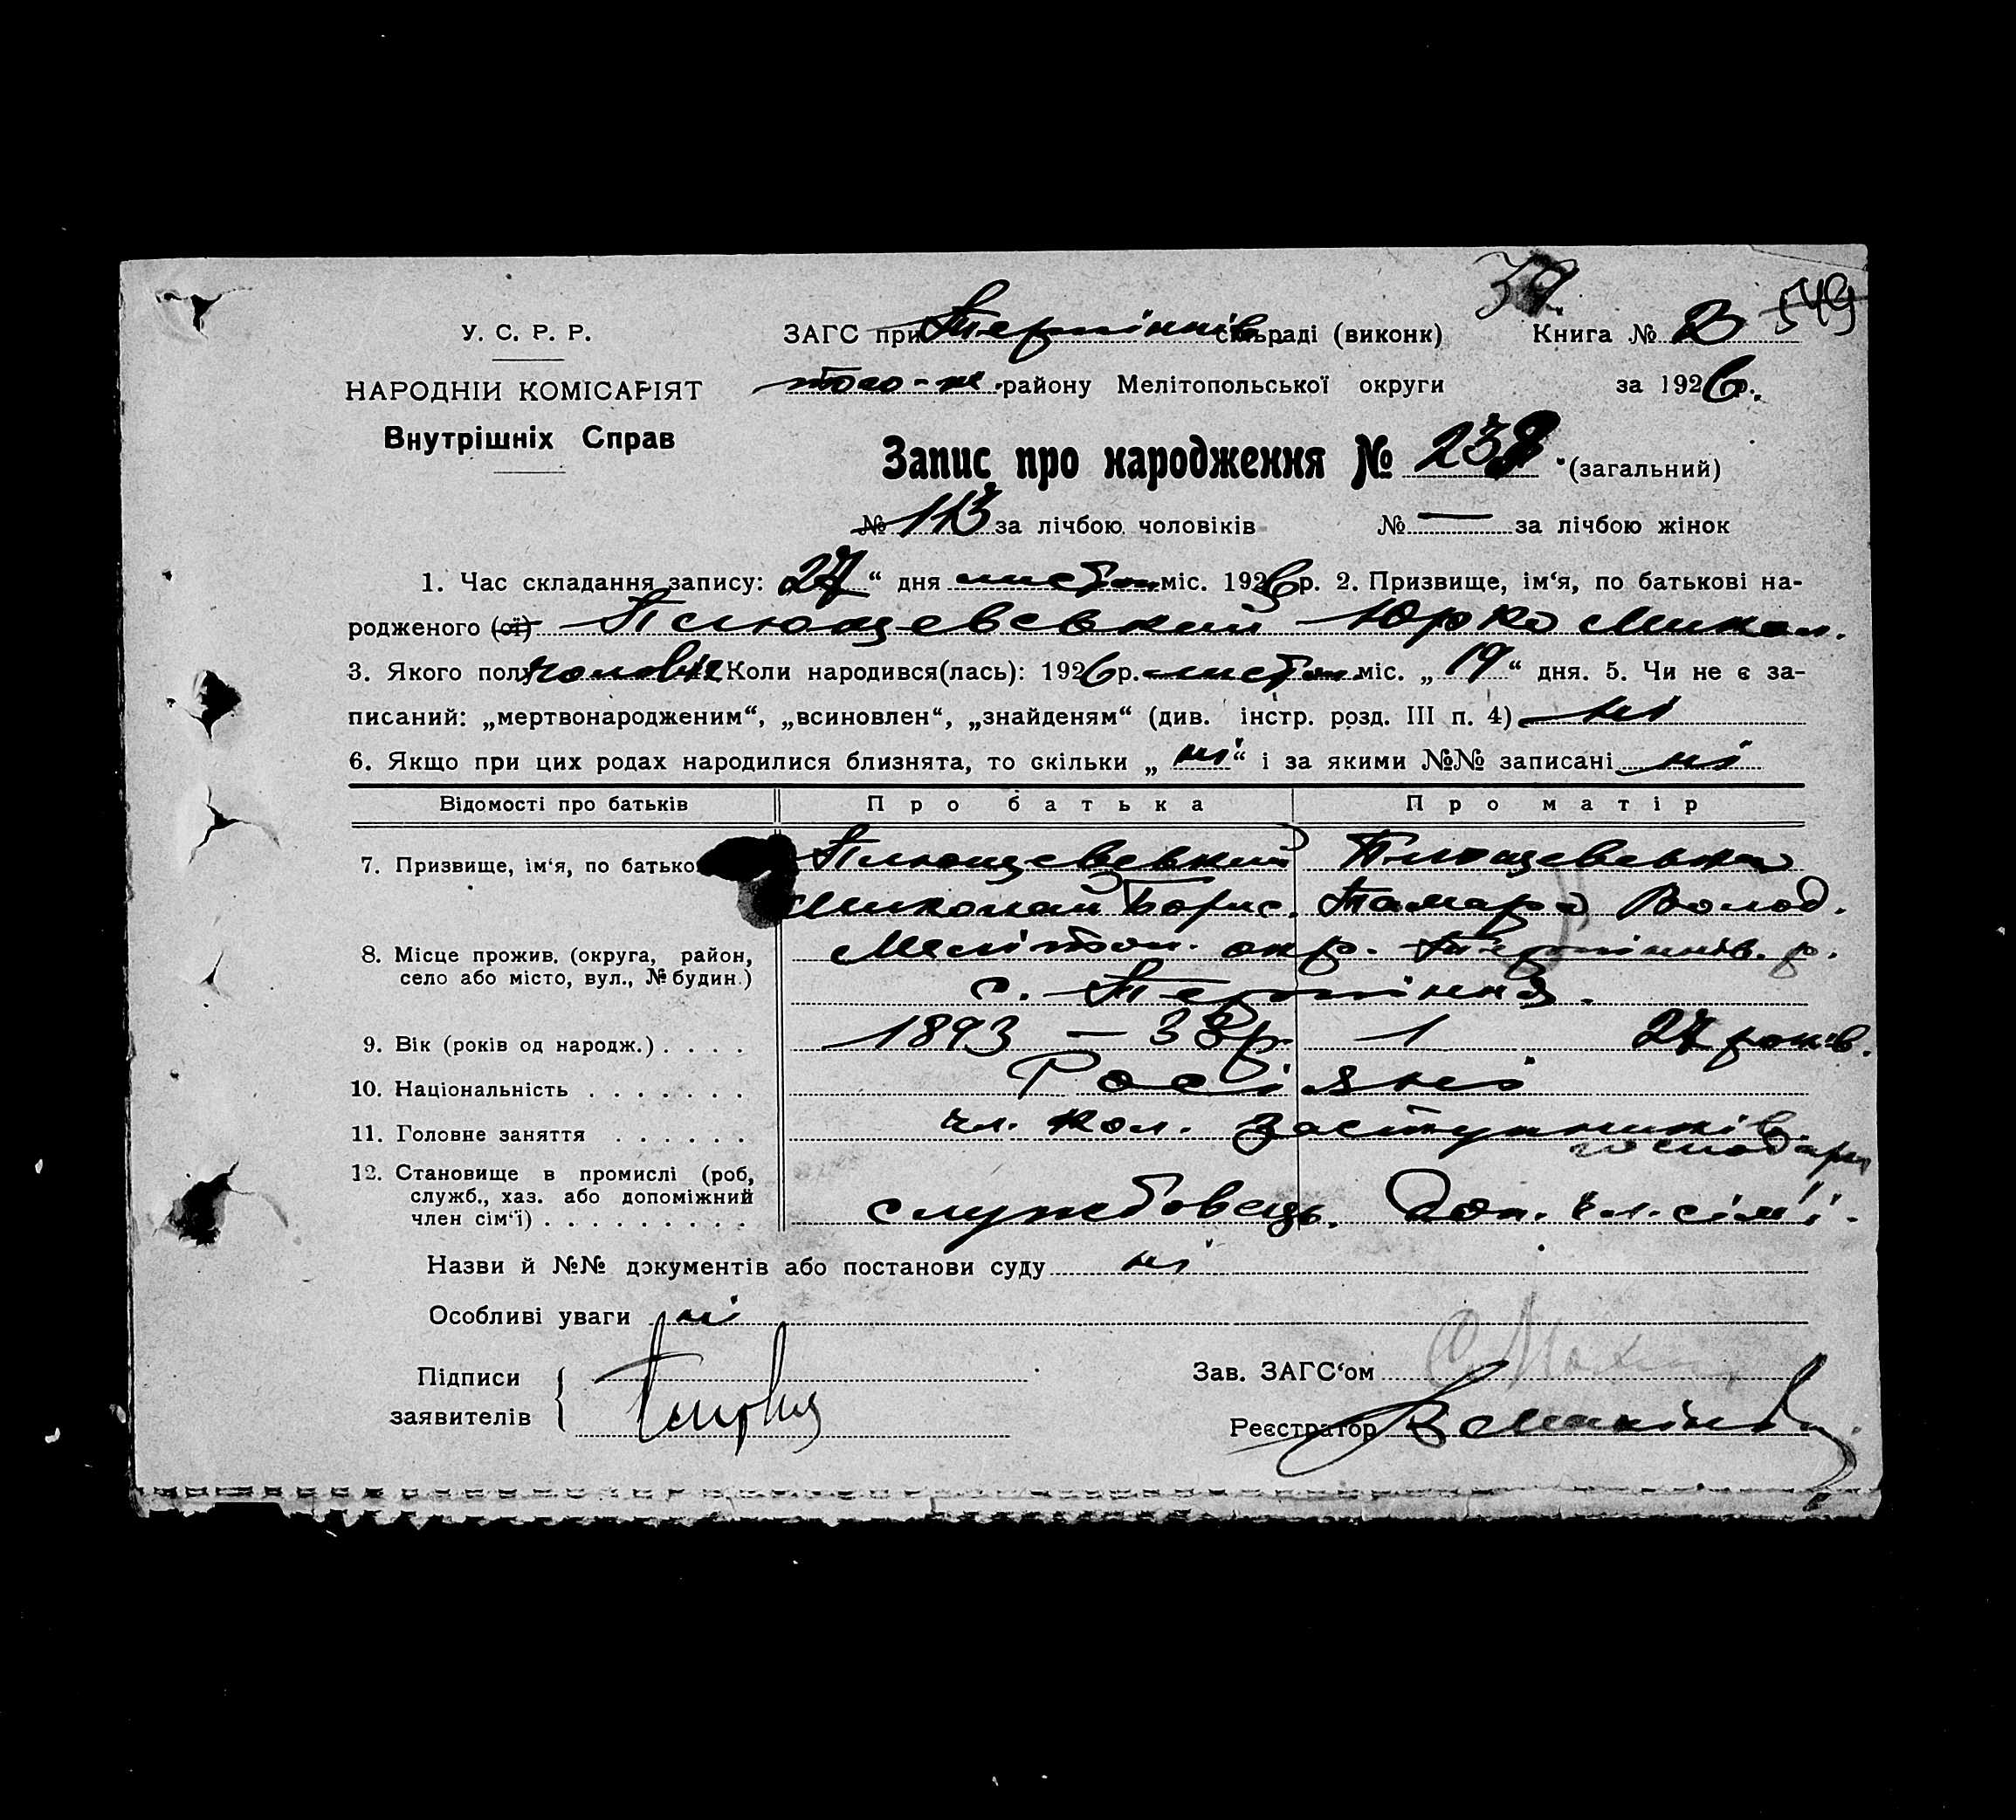 39 549
У. С. Р. Р. ЗАГС при Терпіннів. сільраді (виконк) Книга № 2
НАРОДНІЙ КОМІСАРІЯТ того-ж району Мелітопольської округи за 1926 р.
Внутрішніх Справ
Запис про народження № 238 (загальний)
№ 113 за лічбою чоловіків № — за лічбою жінок
1. Час складання запису: „27“ дня листоп. міс. 1926 р. 2. Призвище, ім‘я, по батькові на-
родженого (ої) Плющевський Юрко Микол.
3. Якого полу чоловіч. Коли народився(лась): 1926 р. листоп. міс. „19“ дня. 5. Чи не є за-
писаний: „мертвонародженим“, „всиновлен“, „знайденям“ (див. інстр. розд. III п. 4) ні
6. Якщо при цих родах народилися близнята, то скільки „ні“ і за якими №№ записані ні
Відомості про батьків Про батька Про матір
7. Призвище, ім‘я, по батько Плющевський Плющевська
Николай Борис. Тамара Волод.
8. Місце прожив. (округа, район, Мелітоп. окр. Терпіннів. р.
село або місто, вул., № будин.) с. Терпіння.
9. Вік (років од народж.) 1893 — 33 р. 27 років.
10. Національність Росіяні
11. Головне заняття чл. кол. заступників. господарк
12. Становище в промислі (роб,
служб., хаз. або допоміжний
член сім‘ї) службовець. Доп. чл. сім'ї.
Назви й №№ документів або постанови суду ні
Особливі уваги ні
Підписи Зав. ЗАГС‘ом
заявителів Реєстратор